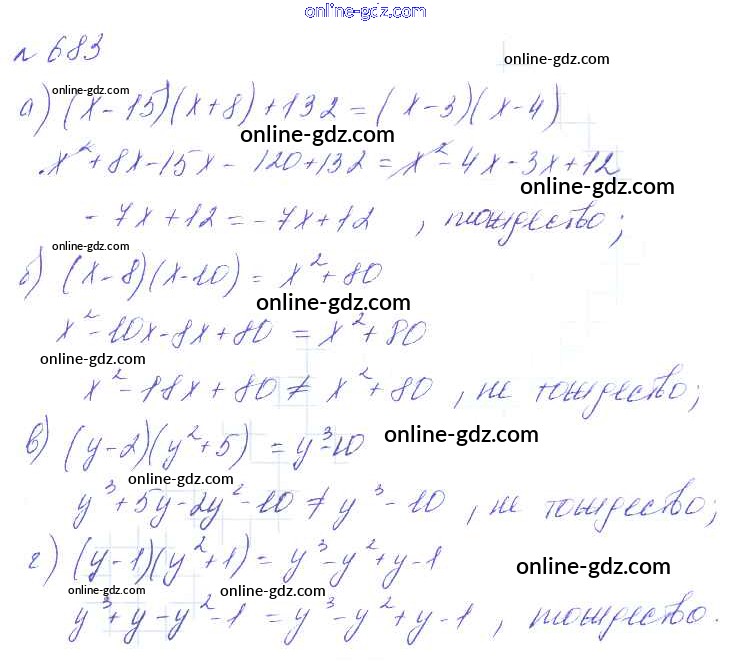 online-gdz.com
№ 683
online-gdz.com
online-gdz.com
а) (x-15)(x+8)+132=(x-3)(x-4)
online-gdz.com
x²+8x-15x-120+132=x²-4x-3x+12
online-gdz.com
-7x+12=-7x+12, тождество;
online-gdz.com
б) (x-8)(x-10)=x²+80
online-gdz.com
x²-10x-8x+80=x²+80
online-gdz.com
x²-18x+80≠x²+80, не тождество;
online-gdz.com
в) (y-2)(y²+5)=y³-10
online-gdz.com
y³+5y-2y²-10≠y³-10, не тождество;
г) (y-1)(y²+1)=y³-y²+y-1
online-gdz.com
online-gdz.com
y³+y-y²-1=y³-y²+y-1, тождество.